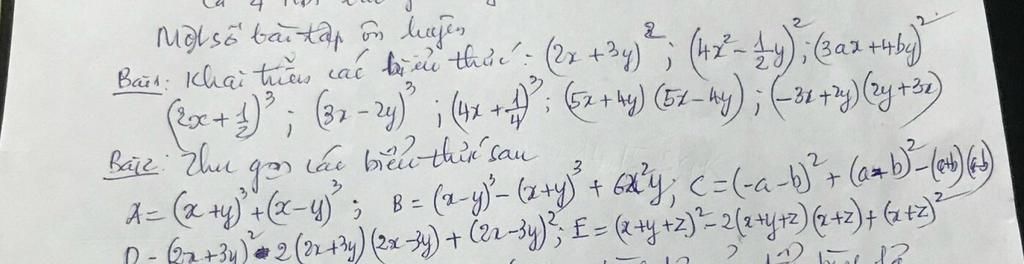 Một số bài tập ôn luyện
Bài 1: Khai triển các biểu thức: (2x + 3y)²; (4x² - 1/2 y)²; (3ax + 4by)²
(2x + 1/2)³; (3x - 2y)³; (4x + 1/4)³; (5x + 4y)(5x - 4y); (-3x + 2y)(2y + 3x)
Bài 2: Thu gọn các biểu thức sau
A = (x+y)³ + (x-y)³; B = (x-y)³ - (x+y)³ + 6x²y; C = (-a-b)² + (a-b)² - (a+b)(a-b)
D = (2x+3y)² - 2(2x+3y)(2x-3y) + (2x-3y)²; E = (x+y+z)² - 2(x+y+z)(x+z) + (x+z)²